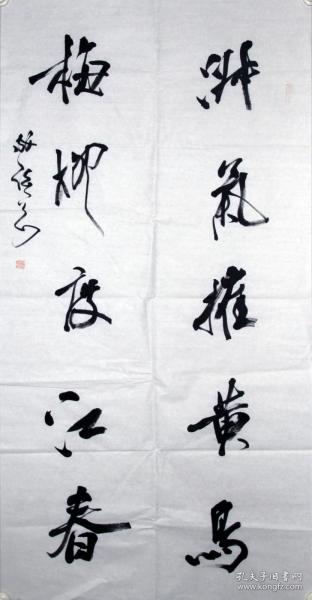 淑氣催黄鳥
梅柳度江春
孔夫子旧书网
www.kongfz.com